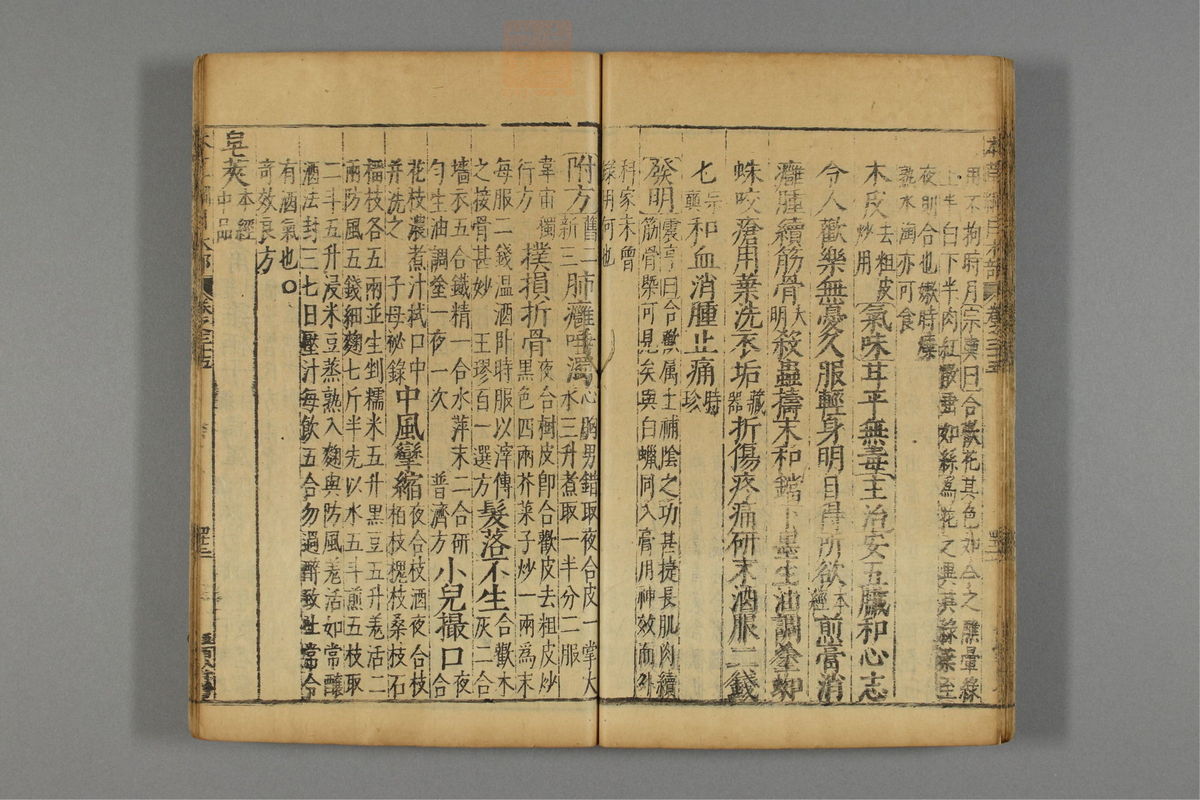 用不拘時月宗奭曰合歡花其色如今之醮暈綠
上半白下半肉紅散垂如絲為花之異其綠葉至
夜則合也嫩時煠
熟水淘亦可食
木皮去粗皮炒用氣味甘平無毒主治安五臟和心志
令人歡樂無憂久服輕身明目得所欲本經煎膏消
癰腫續筋骨大明殺蟲擣末和鐺下墨生油調塗蜘
蛛咬瘡用葉洗衣垢藏器折傷疼痛研末酒服二錢
匕宗奭和血消腫止痛時珍
發明震亨曰合歡属土補陰之功甚捷長肌肉續
筋骨槩可見矣與白蠟同入膏用神效而外
科家未曾
錄用何也
附方舊二新三肺癰唾濁心胸男錯取夜合皮一掌大
水三升煮取一半分二服
韋甫獨行方撲損折骨夜合樹皮即合歡皮去粗皮炒
黑色四兩芥菜子炒一兩為末
每服二錢温酒卧時服以滓傅
之接骨甚妙王璆百一選方髮落不生合歡木灰二合
墻衣五合鐵精一合水萍末二合研
勻生油調塗一夜一次普濟方小兒撮口夜合
花枝濃煮汁拭口中
并洗之子母秘錄中風攣縮夜合枝酒夜合枝
柏枝槐枝桑枝石
榴枝各五兩並生剉糯米五升黑豆五升羗活二
兩防風五錢細麴七斤半先以水五斗煎五枝取
二斗五升浸米豆蒸熟入麴與防風羗活如常釀
酒法封三七日壓汁每飲五合勿過醉致吐常令
有酒氣也
奇效良方
皂莢本經中品